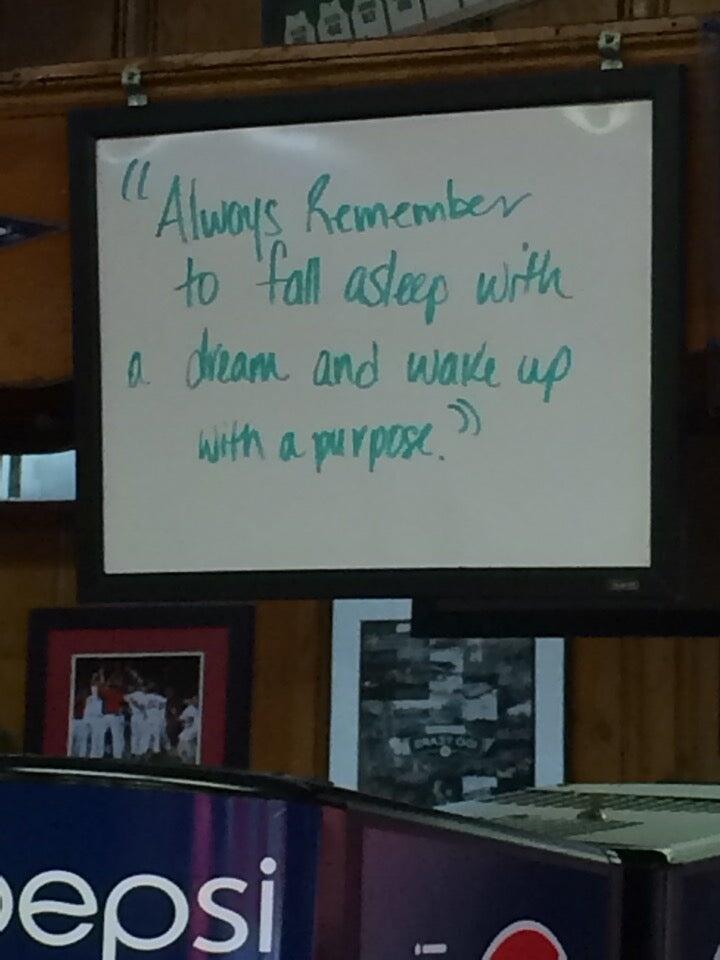 “Always Remember
to fall asleep with
a dream and wake up
with a purpose.”
pepsi